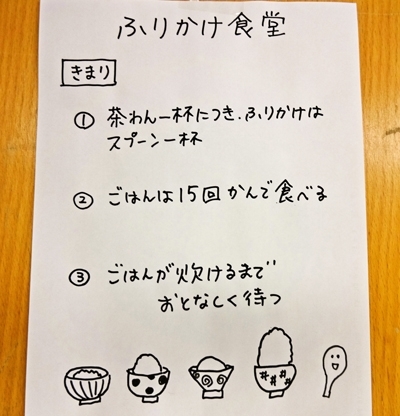 ふりかけ食堂
きまり
① 茶わん一杯につき、ふりかけは
スプーン一杯
② ごはんは15回かんで食べる
③ ごはんが炊けるまで
おとなしく待つ